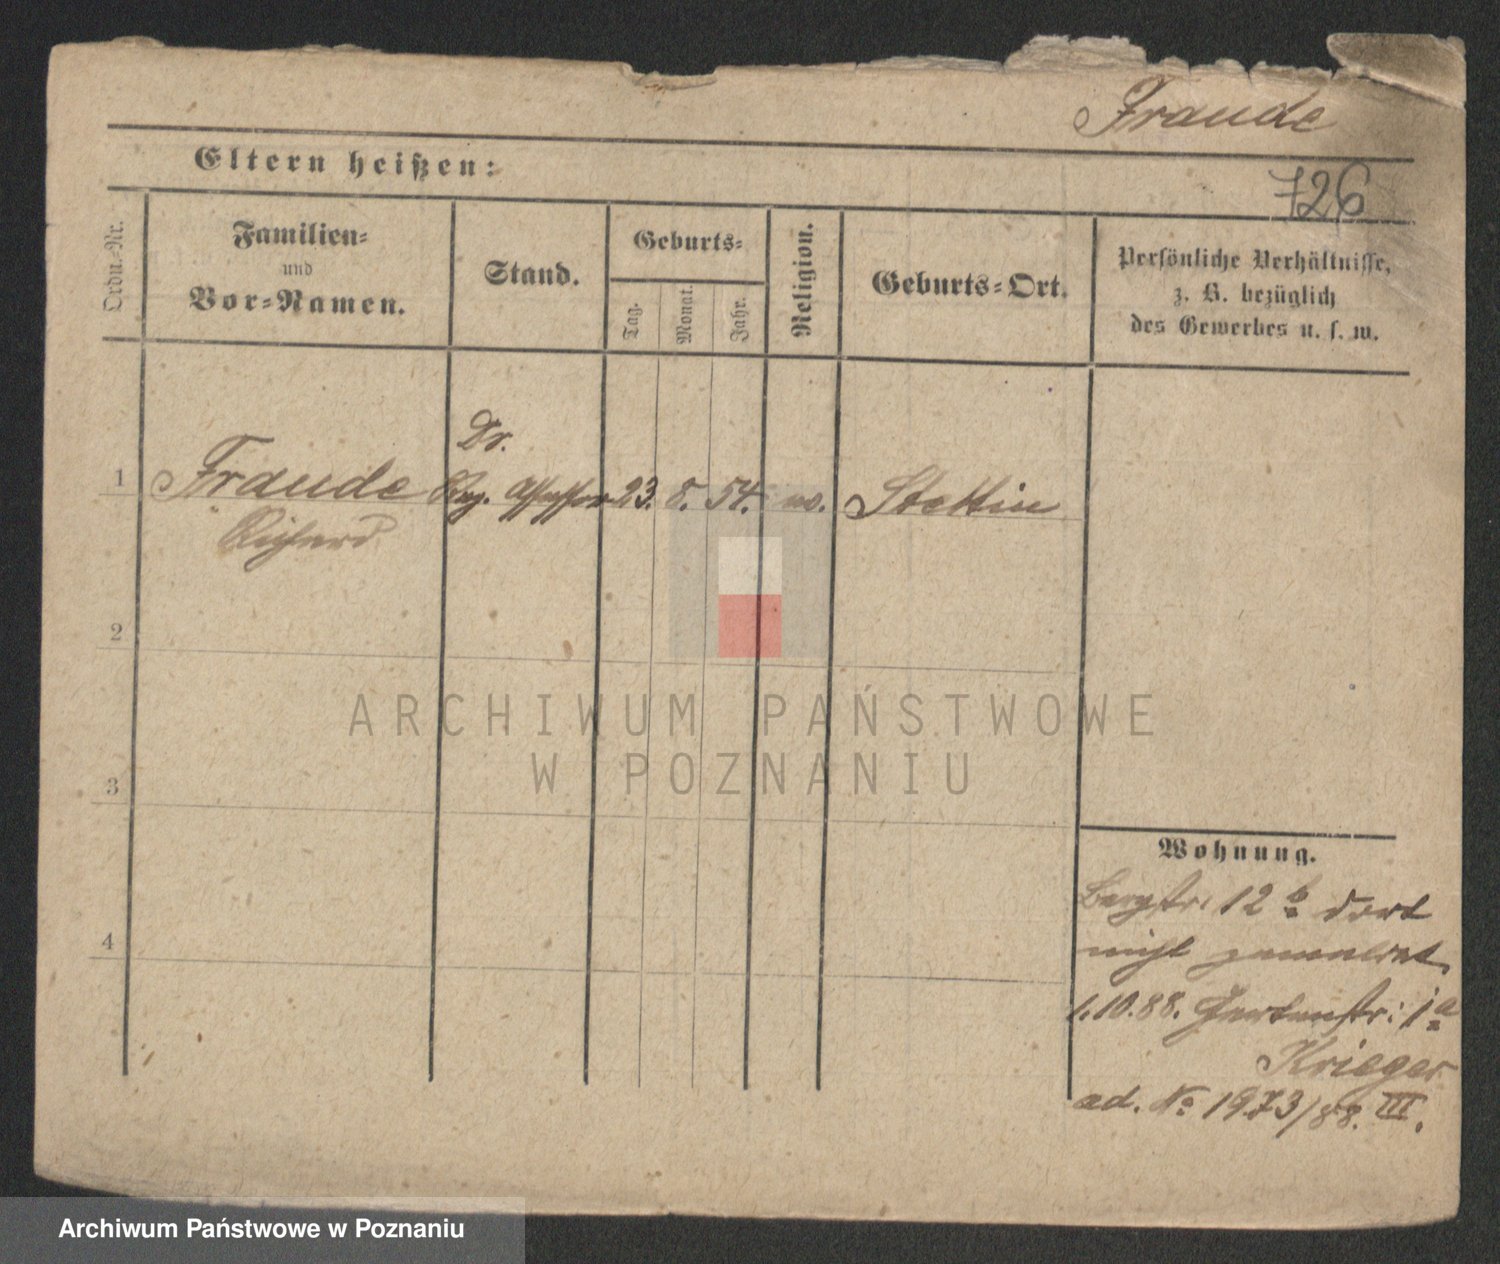 Fraude
Eltern heißen:
726
Ordn.-Nr.
Familien-
und
Vor-Namen.
Stand.
Geburts-
Tag.
Monat.
Jahr.
Religion.
Geburts-Ort.
Persönliche Verhältnisse,
z. B. bezüglich
des Gewerbes u. s. w.
Dr.
1 Fraude Reg. Assessor 23. 8. 54. ev. Stettin
Richard
2
3
4
Wohnung.
Bergstr. 12 b dort
nicht gemeldet,
1.10.88. Gartenstr: 1a
Krieger
ad. No 1973/88. III.
ARCHIWUM PAŃSTWOWE
W POZNANIU
Archiwum Państwowe w Poznaniu